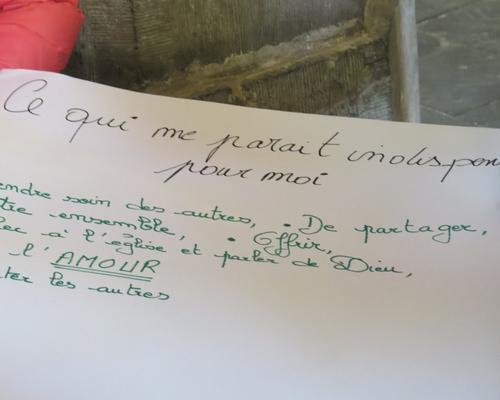 Ce qui me parait indispen
pour moi
endre soin des autres, • De partager,
tre ensemble, • Offrir,
ler à l'église et parler de Dieu,
l'AMOUR
ter les autres